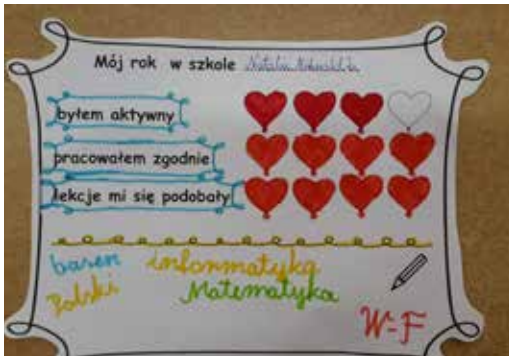 Mój rok w szkole Natalia
byłem aktywny
pracowałem zgodnie
lekcje mi się podobały
basen informatyka
Polski Matematyka
W-F